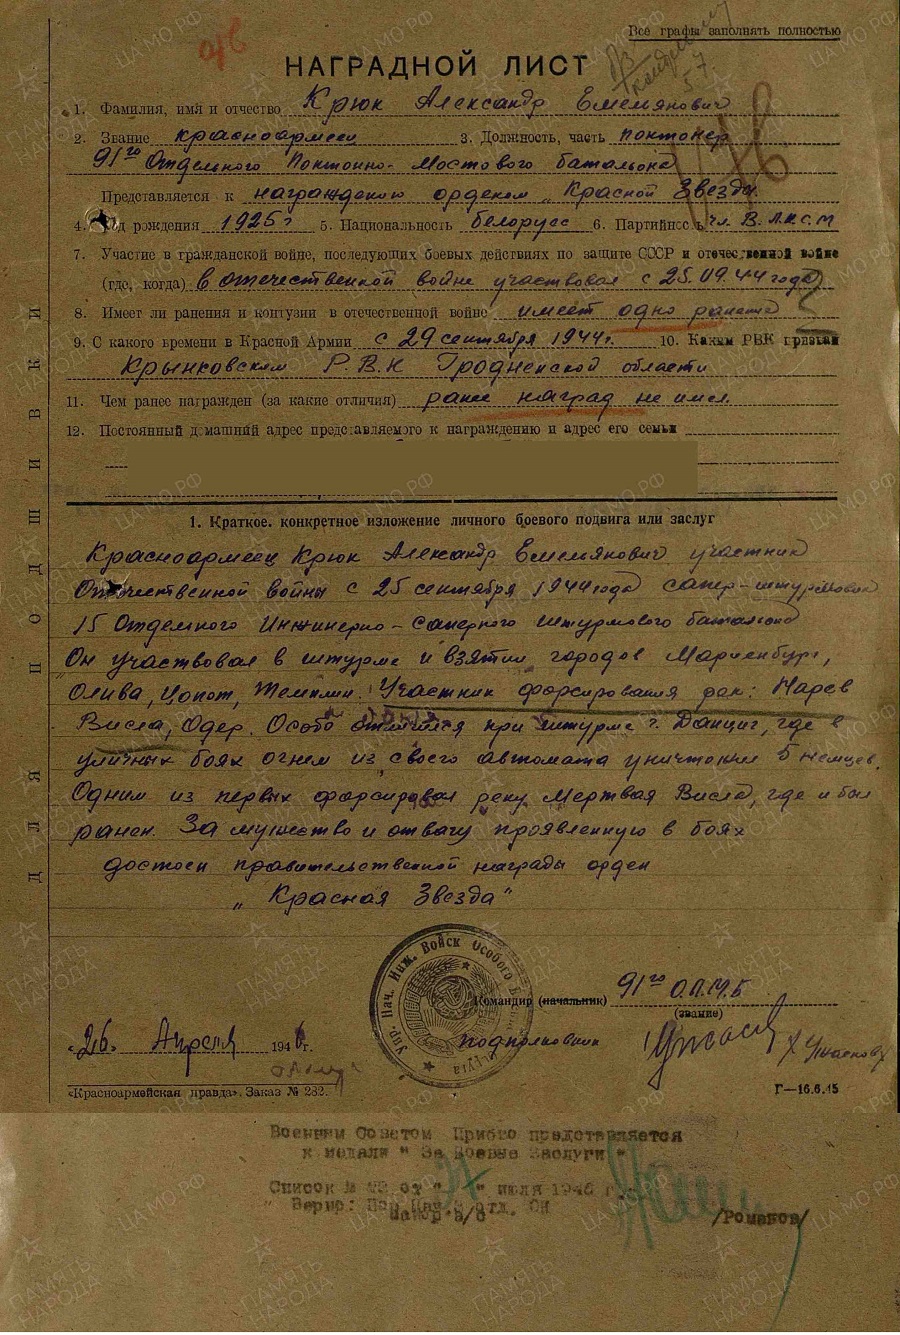 Все графы заполнять полностью
НАГРАДНОЙ ЛИСТ
1. Фамилия, имя и отчество Крюк Александр Емемянович
2. Звание красноармеец 3. Должность, часть понтонер
91го Отдельного Понтонно-Мостового батальона
Представляется к награждению орденом „Красной Звезды"
4. Год рождения 1925 г 5. Национальность белорусс 6. Партийность чл. В.Л.К.С.М
7. Участие в гражданской войне, последующих боевых действиях по защите СССР и отечественной войне
(где, когда) в отечественной войне участвовал с 25.09.44 года
8. Имеет ли ранения и контузии в отечественной войне имеет одно ранение
9. С какого времени в Красной Армии с 29 сентября 1944 г. 10. Каким РВК призван
Крынковским Р.В.К Гродненской области
11. Чем ранее награжден (за какие отличия) ранее наград не имел.
12. Постоянный домашний адрес представляемого к награждению и адрес его семьи
1. Краткое, конкретное изложение личного боевого подвига или заслуг
Красноармеец Крюк Александр Емемянович участник
Отечественной войны с 25 сентября 1944 года сапер-штурмовик
15 Отдельного Инжинерно-Саперного штурмового баталиона
Он участвовал в штурме и взятии городов Мариенбург,
Олива, Цопот, Темплин. Участник форсирования рек: Нарев
Висла, Одер. Особо отличился при штурме г. Данциг, где в
уличных боях огнем из своего автомата уничтожил 5 немцев.
Одним из первых форсировал реку Мертвая Висла, где и был
ранен. За мужество и отвагу проявленную в боях
достоен правительственной награды орден
„Красная Звезда"
ДЛЯ ПОДШИВКИ
Упр. Нач. Инж. Войск Особого
Командир (начальник) 91го О.П.М.Б
(звание)
подполковник
«26» Апреля 1946 г.
«Красноармейская правда». Заказ № 232.
Г—16.6.45
Военным Советом Прибво представляется
к медали " За Боевые Заслуги "
Список № от " " июля 1946 г.
Верно:
Майор а/с
/Романов/
ПАМЯТЬ НАРОДА
ЦАМО.РФ